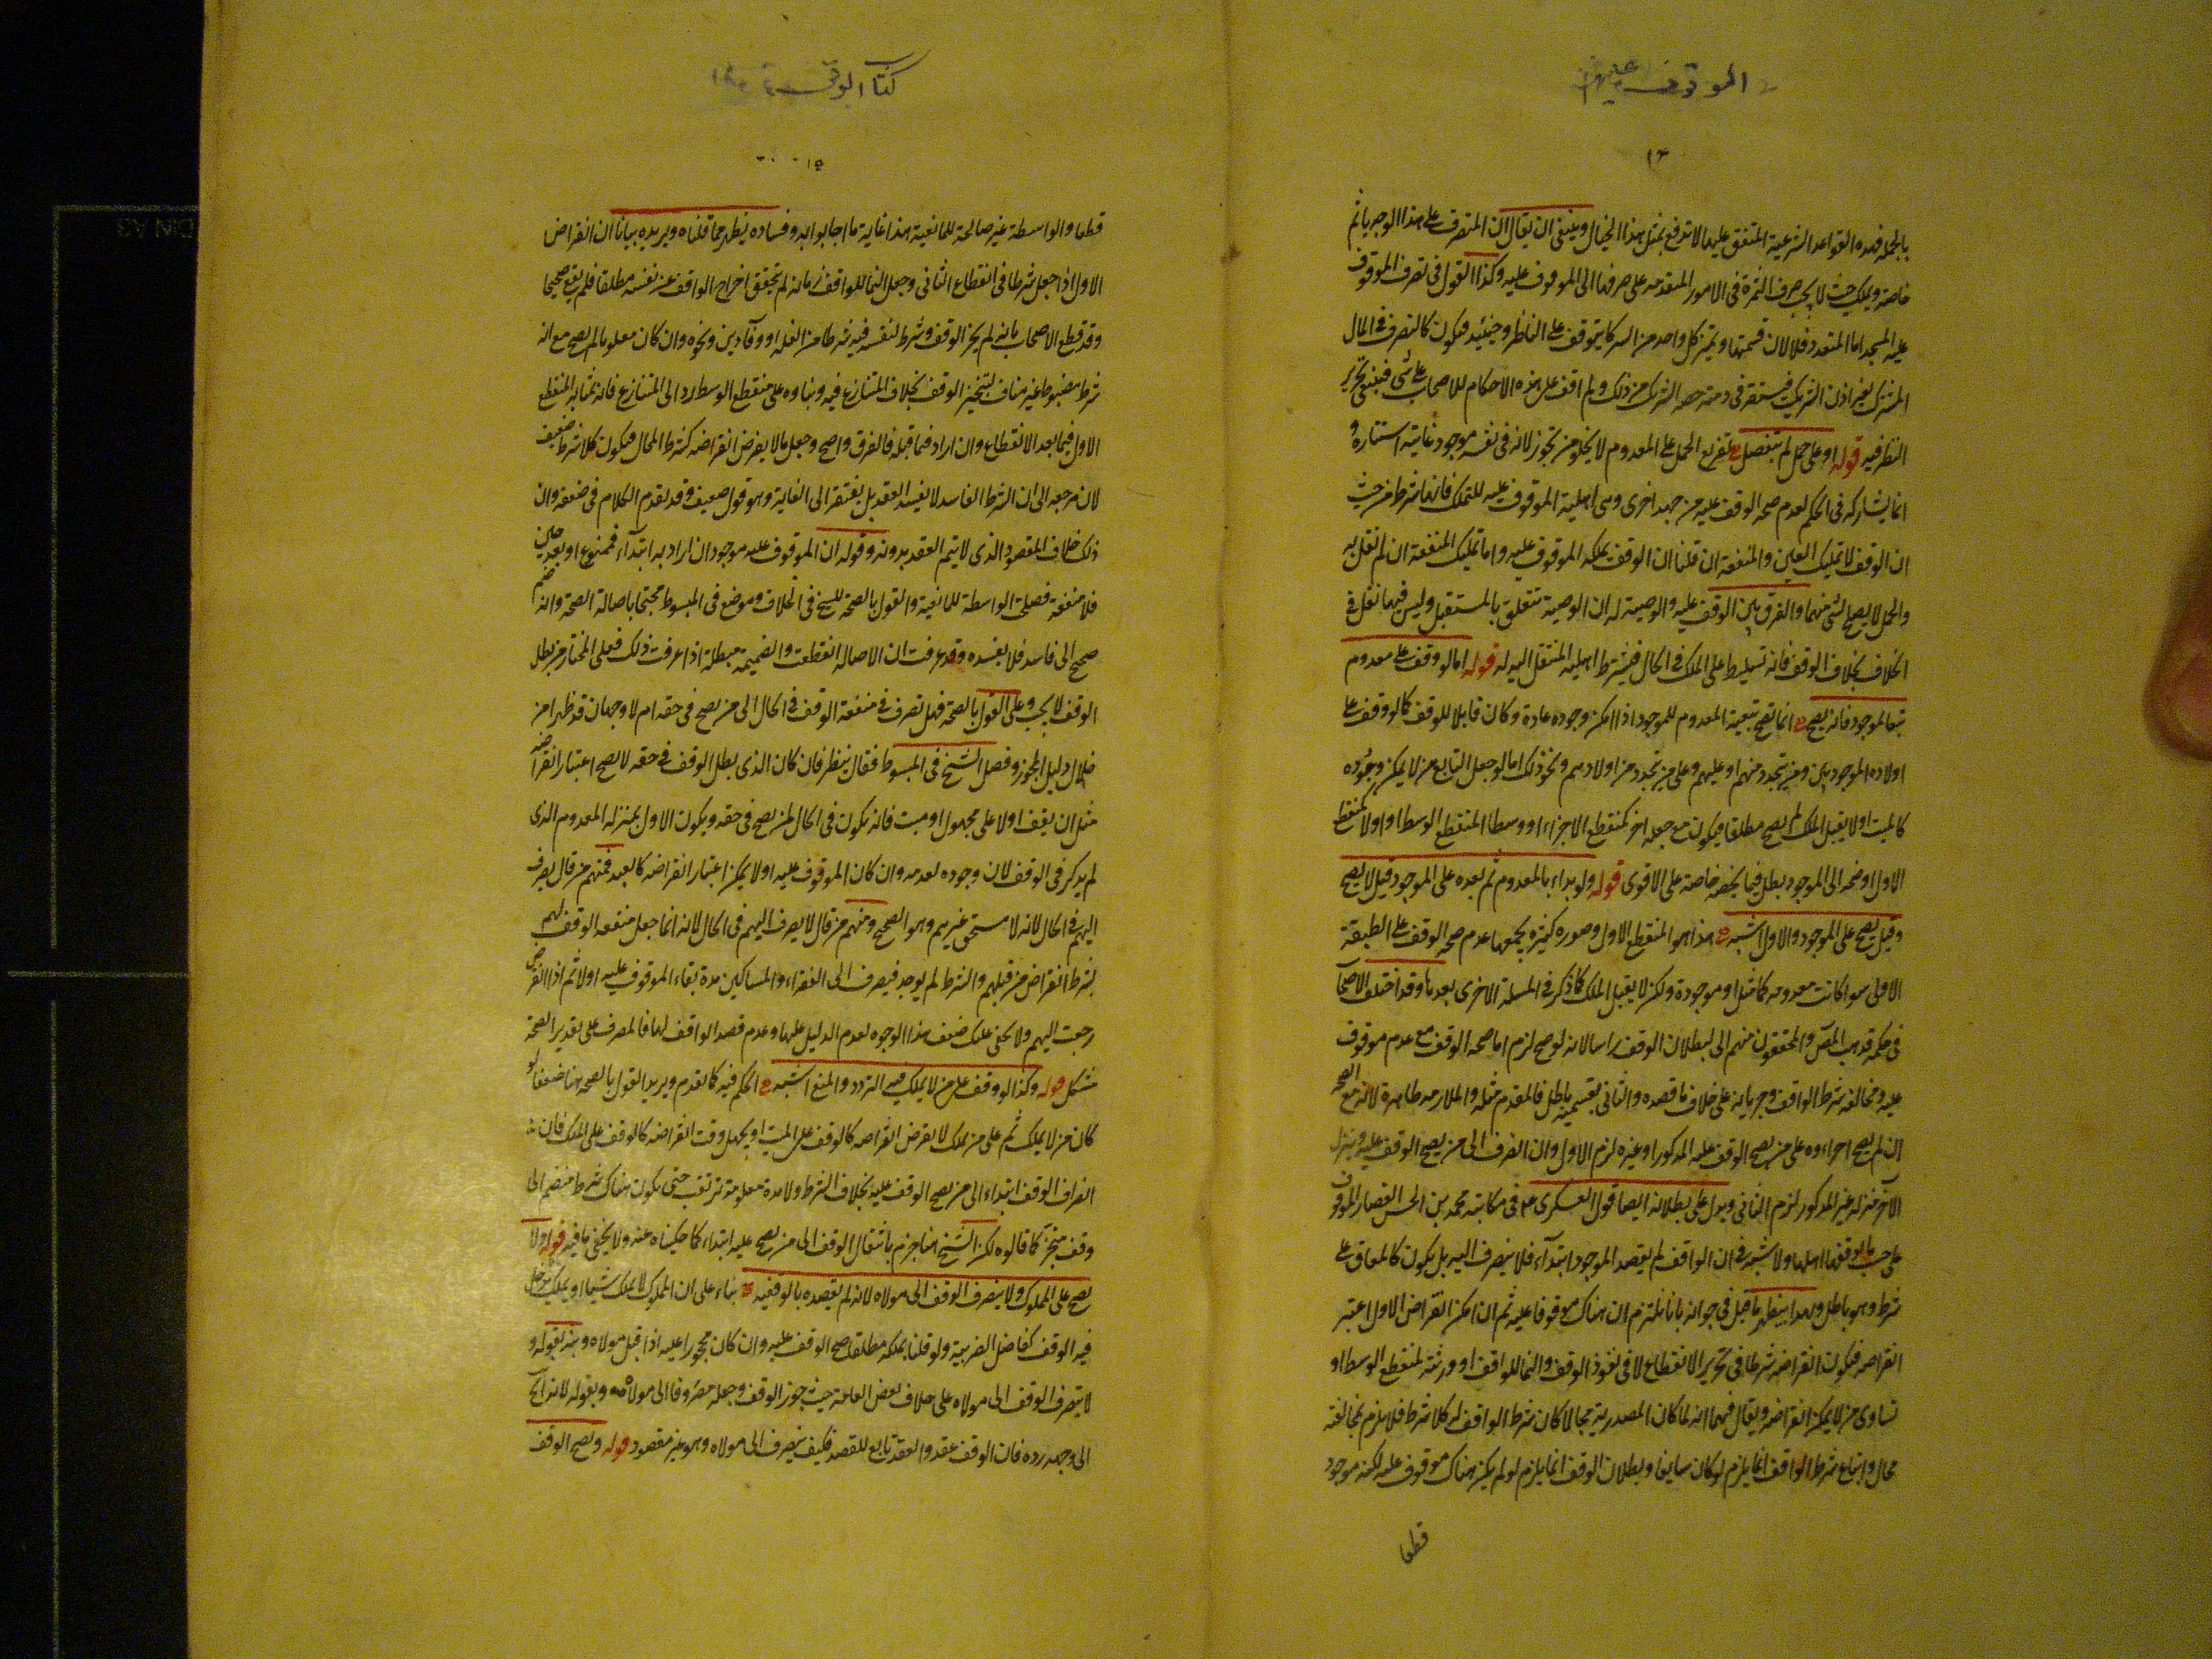 الموقوف عليهم
١٤
بالجملة فهذه القواعد الشرعية المتفق عليها لا تدفع بمثل هذا الخيال وينبغي ان يقال ان المتصرف على هذا الوجه ياثم
خاصة ويملك حيث لا يجب صرف الثمرة في الامور المتقدمة على صرفها الى الموقوف عليه وكذا القول في تصرف الموقوف
عليه المتحد اما المتعدد فلا لان قسمتها وتميز كل واحد من الشركا يتوقف على الناظر وحينئذ فيكون كالتصرف في المال
المشترك بغير اذن الشريك فيستقر في ذمته حصة الشريك من ذلك ولم اقف على هذه الاحكام للاصحاب على شئ فينبغي تحرير
النظر فيه قوله او على حمل لم ينفصل تفريع الحمل على المعدوم لا يخلو من تجوز لانه في نفسه موجود غايته استتاره و
انما يشاركه في الحكم لعدم صحة الوقف عليه من جهة اخرى وهي اهلية الموقوف عليه للتملك فانها شرط من حيث
ان الوقف لا تمليك العين والمنفعة ان قلنا ان الوقف يملكه الموقوف عليه واما تمليك المنفعة ان لم نقل به
والحمل لا يصح لشئ منهما والفرق بين الوقف عليه والوصية له ان الوصية تتعلق بالمستقبل وليس فيها نقل في
الخلاف بخلاف الوقف فانه تسليط على الملك في الحال فيشترط اهلية المنتقل اليه له قوله اما لو وقف على معدوم
تبعا لموجود فانه يصح انما تصح تبعية المعدوم للموجود اذا امكن وجوده عادة وكان قابلا للوقف كالو وقف على
اولاده الموجودين ومن يتجدد منهم او عليهم وعلى من يتجدد من اولادهم ونحو ذلك اما لو جعل التابع من لا يمكن وجوده
كالميت او لا يقبل الملك لم يصح مطلقا فيكون مع جعله اخر كمنقطع الاخر او وسطا المنقطع الوسط او اولا كمنقطع
الاول او ضمه الى الموجود بطل فيما يخصه خاصة على الاقوى قوله ولو بداء بالمعدوم ثم بعده على الموجود قيل لا يصح
وقيل يصح على الموجود والاول اشبه هذا هو المنقطع الاول وصوره كثيرة يجمعها عدم صحة الوقف على الطبقة
الاولى سوا كانت معدومة كما مثل او موجودة ولكن لا يقبل الملك كما ذكر في المسئلة الاخرى بعدها وقد اختلف الاصحاب
في حكمه فذهب المص والمحققون منهم الى بطلان الوقف راسا لانه لو صح لزم اما صحة الوقف مع عدم موقوف
عليه ومخالفة شرط الواقف وجريانه على خلاف ما قصده والثاني بقسميه باطل فالمقدم مثله والملازمة ظاهرة لانه مع الصحة
ان لم يصح اجراءوه على من يصح الوقف عليه المذكور او غيره لزم الاول وان انصرف الى من يصح الوقف عليه وينزل
الاخر منزلة غير المذكور لزم الثاني ويدل على بطلانه ايضا قول العسكري ع في مكاتبة محمد بن الحسن الصفار الوقوف
على حسب ما يوقفها اهلها ولا شبهة في ان الواقف لم يقصد الموجود ابتداء فلا ينصرف اليه بل يكون كالمعلق على
شرط وهو باطل وبهذا يظهر ما قيل في جوابه بانا نلتزم ان هناك موقوفا عليه ثم ان امكن انقراض الاول اعتبر
انقراضه فيكون انقراضه شرطا في تحرير الانقطاع لا في نفوذ الوقف والنما للواقف او ورثته لمنقطع الوسط او
تساوى من لا يمكن انقراضه ويقال فيهما انه لما كان المصدر به محالا كان شرط الواقف له كلا شرط فلا يلزم مخالفته
محال واتباع شرط الواقف انما يلزم لو كان سايغا وبطلان الوقف انما يلزم لو لم يكن هناك موقوف عليه لكنه موجود
قطعا
كتاب الوقف
١٥
قطعا والواسطة غير صالحة للمانعية هذا غاية ما اجابوا به وفساده يظهر مما قلناه ويزيده بيانا ان انقراض
الاول اذا جعل شرطا في انقطاع الثاني وجعل النما للواقف زمانه لم يتحقق اخراج الواقف عن نفسه مطلقا فلم يقع صحيحا
وقد قطع الاصحاب بانه لم يجز الوقف وشرط لنفسه فيه شرطا من الغلة او وفآ دين ونحوه وان كان معلوما لم يصح مع انه
شرط مضبوط غير مناف لتنجيز الوقف بخلاف المتنازع فيه وبناوه على منقطع الوسط رد الى المتنازع فانه بمثابة المنقطع
الاول فيما بعد الانقطاع وان اراد فيما قبله فالفرق واضح وجعل ما لا يفرض انقراضه كشرط المحال فيكون كلا شرط ضعيف
لان مرجعه الى ان الشرط الفاسد لا يفسد العقد بل يفتقر الى الغاية وهو قول ضعيف وقد تقدم الكلام في ضعفه وان
ذلك خلاف المقصود الذي لا يتم العقد بدونه وقوله ان الموقوف عليه موجود ان اراد به ابتداء فممنوع او بعد حين
فلا منفعة فصلحت الواسطة للمانعية والقول بالصحة للشيخ في الخلاف وموضع في المبسوط محتجا باصالة الصحة وانه ضم
صحيح الى فاسد فلا يفسده وقد عرفت ان الاصالة انقطعت والضميمة مبطلة اذا عرفت ذلك فعلى المختار من بطل
الوقف لا يجب وعلى القول بالصحة فهل تصرف في منفعة الوقف في الحال الى من يصح في حقه ام لا وجهان قد ظهرا من
خلال دليل المجوز وفصل الشيخ في المبسوط فقال ينظر فان كان الذي بطل الوقف في حقه لا يصح اعتبار انقراضه
مثل ان يقف اولا على مجهول او ميت فانه يكون في الحال لمن يصح في حقه ويكون الاول بمنزلة المعدوم الذي
لم يذكر في الوقف لان وجوده لعدمه وان كان الموقوف عليه اولا يمكن اعتبار انقراضه كالعبد فمنهم من قال يصرف
اليهم في الحال لانه لا مستحق غيرهم وهو الصحيح ومنهم من قال لا يصرف اليهم في الحال لانه انما جعل منفعة الوقف لهم
بشرط انقراض من قبلهم والشرط لم يوجد فيصرف الى الفقراء والمساكين مدة بقاء الموقوف عليه اولا ثم اذا انقرض
رجعت اليهم ولا يخفى عليك ضعف هذا الوجوه لعدم الدليل عليها وعدم قصد الواقف لها فالمصرف على تقدير الصحة
مشكل قوله وكذا لو وقف على من لا يملك فيه التردد والمنع اشبه الحكم فيه كما تقدم ويزيد القول بالصحة هنا ضعفا لو
كان من لا يملك ثم على من يملك لا يفرض انقراضه كالوقف على الميت او يجهل وقت انقراضه كالوقف على الملك فان
انصراف الوقف ابتداء الى من يصح الوقف عليه بخلاف الشرط ولا مدة معلومة ترتقب حتى يكون هناك شرط منضم الى
وقف منجز كما قالوه لكن الشيخ هنا جزم بانتقال الوقف الى من يصح عليه ابتداء كما حكيناه عنه ولا يخفى ما فيه قوله ولا
يصح على المملوك ولا ينصرف الوقف الى مولاه لانه لم يقصده بالوقفية بناء على ان المملوك لا يملك شيئا او يملك
فيه الوقف كفاضل الضريبة ولو قلنا يملكه مطلقا صح الوقف عليه وان كان محجورا عليه اذا قبل مولاه ونبه بقوله و
لا ينصرف الوقف الى مولاه على خلاف بعض العامة حيث جوز الوقف وجعله مصروفا الى مولاه وبقوله لانه الخ
الى وجه رده فان الوقف عقد والعقد تابع للقصد فكيف ينصرف الى مولاه وهو غير مقصود قوله ويصح الوقف